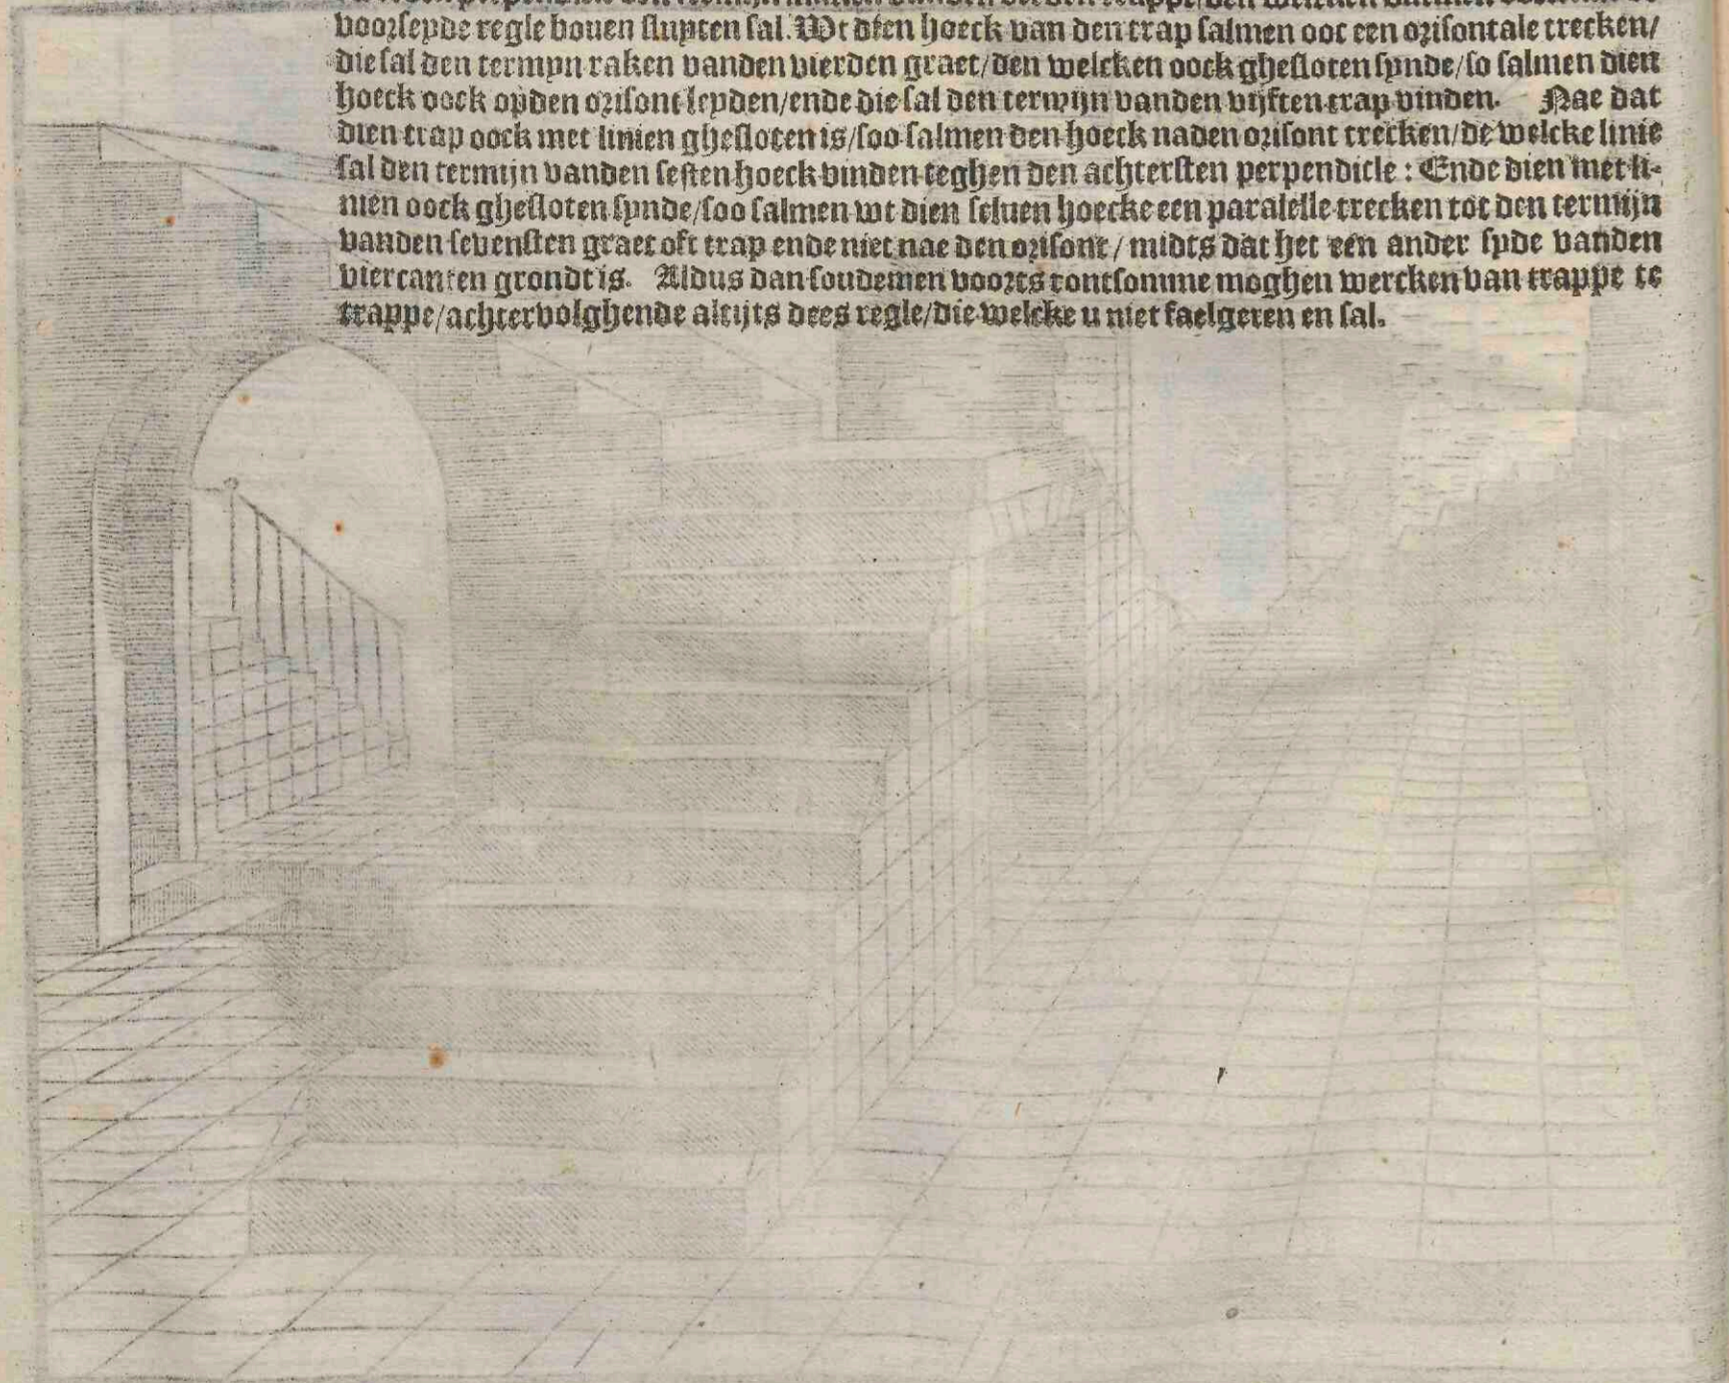 voorseyde regle bouen sluyten sal. Wt dien hoeck van den trap salmen ooc een orisontale trecken/
die sal den termyn raken vanden vierden graet/den welcken oock ghesloten synde/so salmen dien
hoeck oock opden orisont leyden/ende die sal den termijn vanden vijften trap vinden. Nae dat
dien trap oock met linien ghesloten is/soo salmen den hoeck naden orisont trecken/de welcke linie
sal den termijn vanden sesten hoeck vinden teghen den achtersten perpendicle : Ende dien met li-
nien oock ghesloten synde/soo salmen wt dien seluen hoecke een paralelle trecken tot den termijn
vanden sevensten graet oft trap ende niet nae den orisont/ midts dat het een ander syde vanden
viercanten grondt is. Aldus dan soudemen voorts rontsomme moghen wercken van trappe te
trappe/achtervolghende altijts dees regle/die welcke u niet faelgeren en sal.